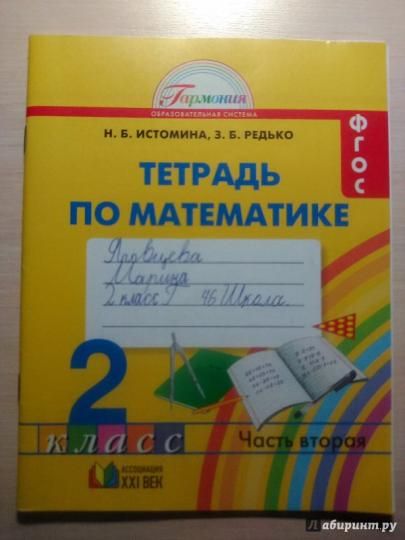 Гармония
ОБРАЗОВАТЕЛЬНАЯ СИСТЕМА
ФГОС
Н. Б. ИСТОМИНА, З. Б. РЕДЬКО
ТЕТРАДЬ
ПО МАТЕМАТИКЕ
Яровцева
Марина
2 класс 46 Школа.
2
класс
Часть вторая
АССОЦИАЦИЯ
XXI ВЕК
Лабиринт.ру